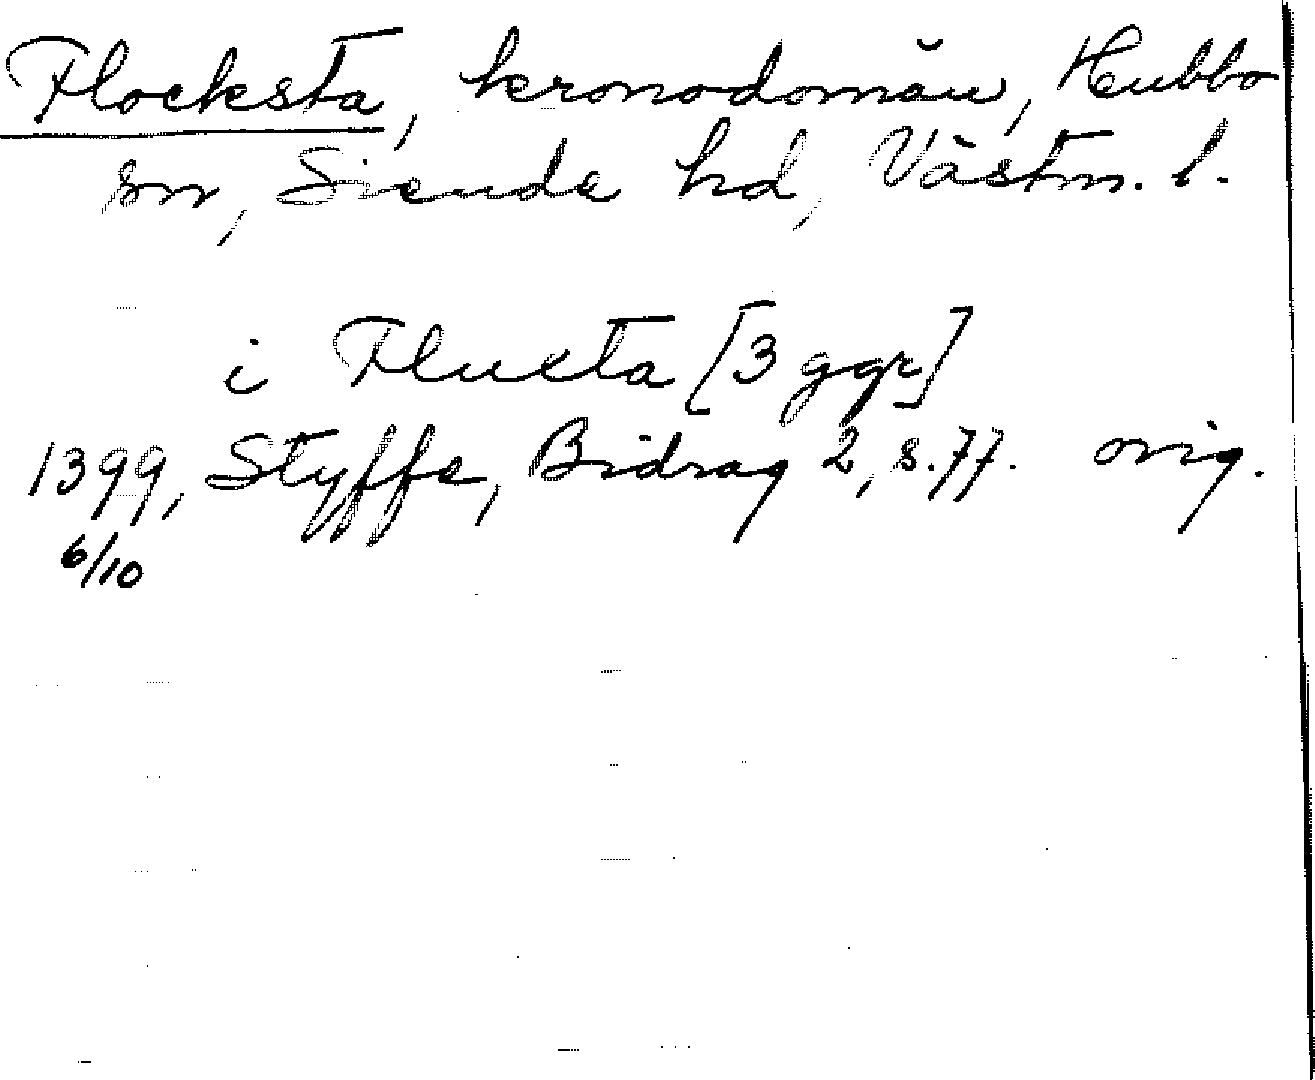 Flocksta, kronodomän, Hubbo
sn, Siende hd, Västm. l.
i Flusta [3 ggr]
1399, Styffe, Bidrag 2, s. 77. orig.
6/10